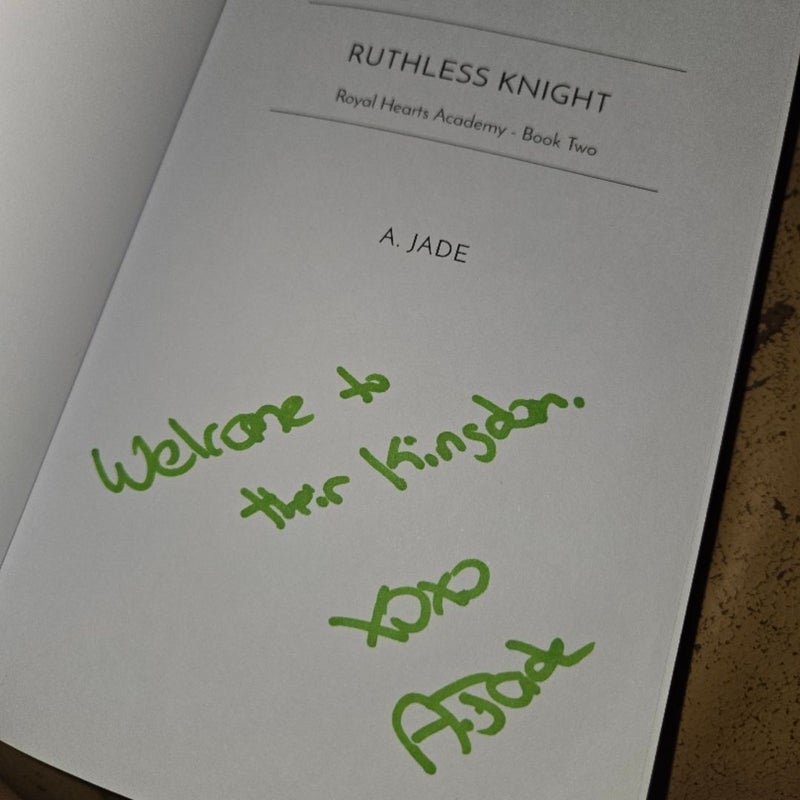 RUTHLESS KNIGHT
Royal Hearts Academy - Book Two
A. JADE
Welcome to
their Kingdom.
XOXO
A. Jade